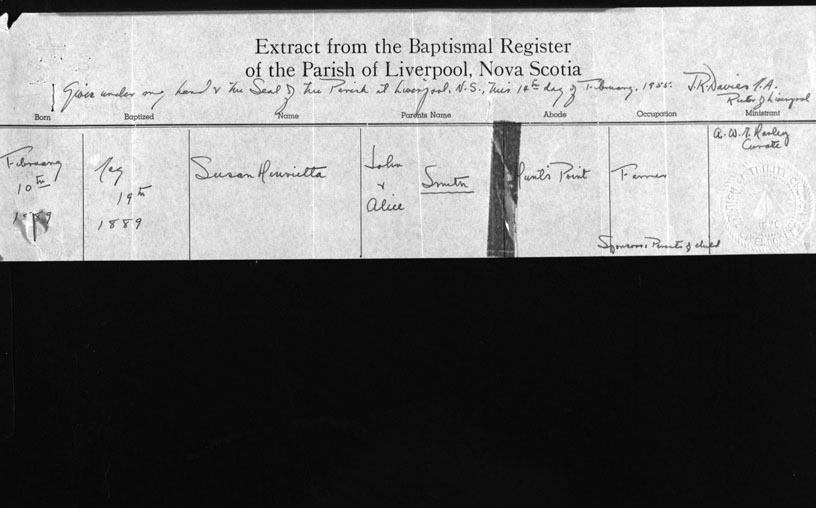 Extract from the Baptismal Register
of the Parish of Liverpool, Nova Scotia
Given under my hand & the Seal of the Parish at Liverpool, N.S., this 10th day of February, 1955. J.R. Davies
Rector of Liverpool
Born Baptized Name Parents Name Abode Occupation Ministrant
February
10th
1889
May
19th
1889
Susan Henrietta
John
&
Alice
Smith
Hunt's Point
Farmer
A. W. Harley
Curate
Sponsors: Parents of child